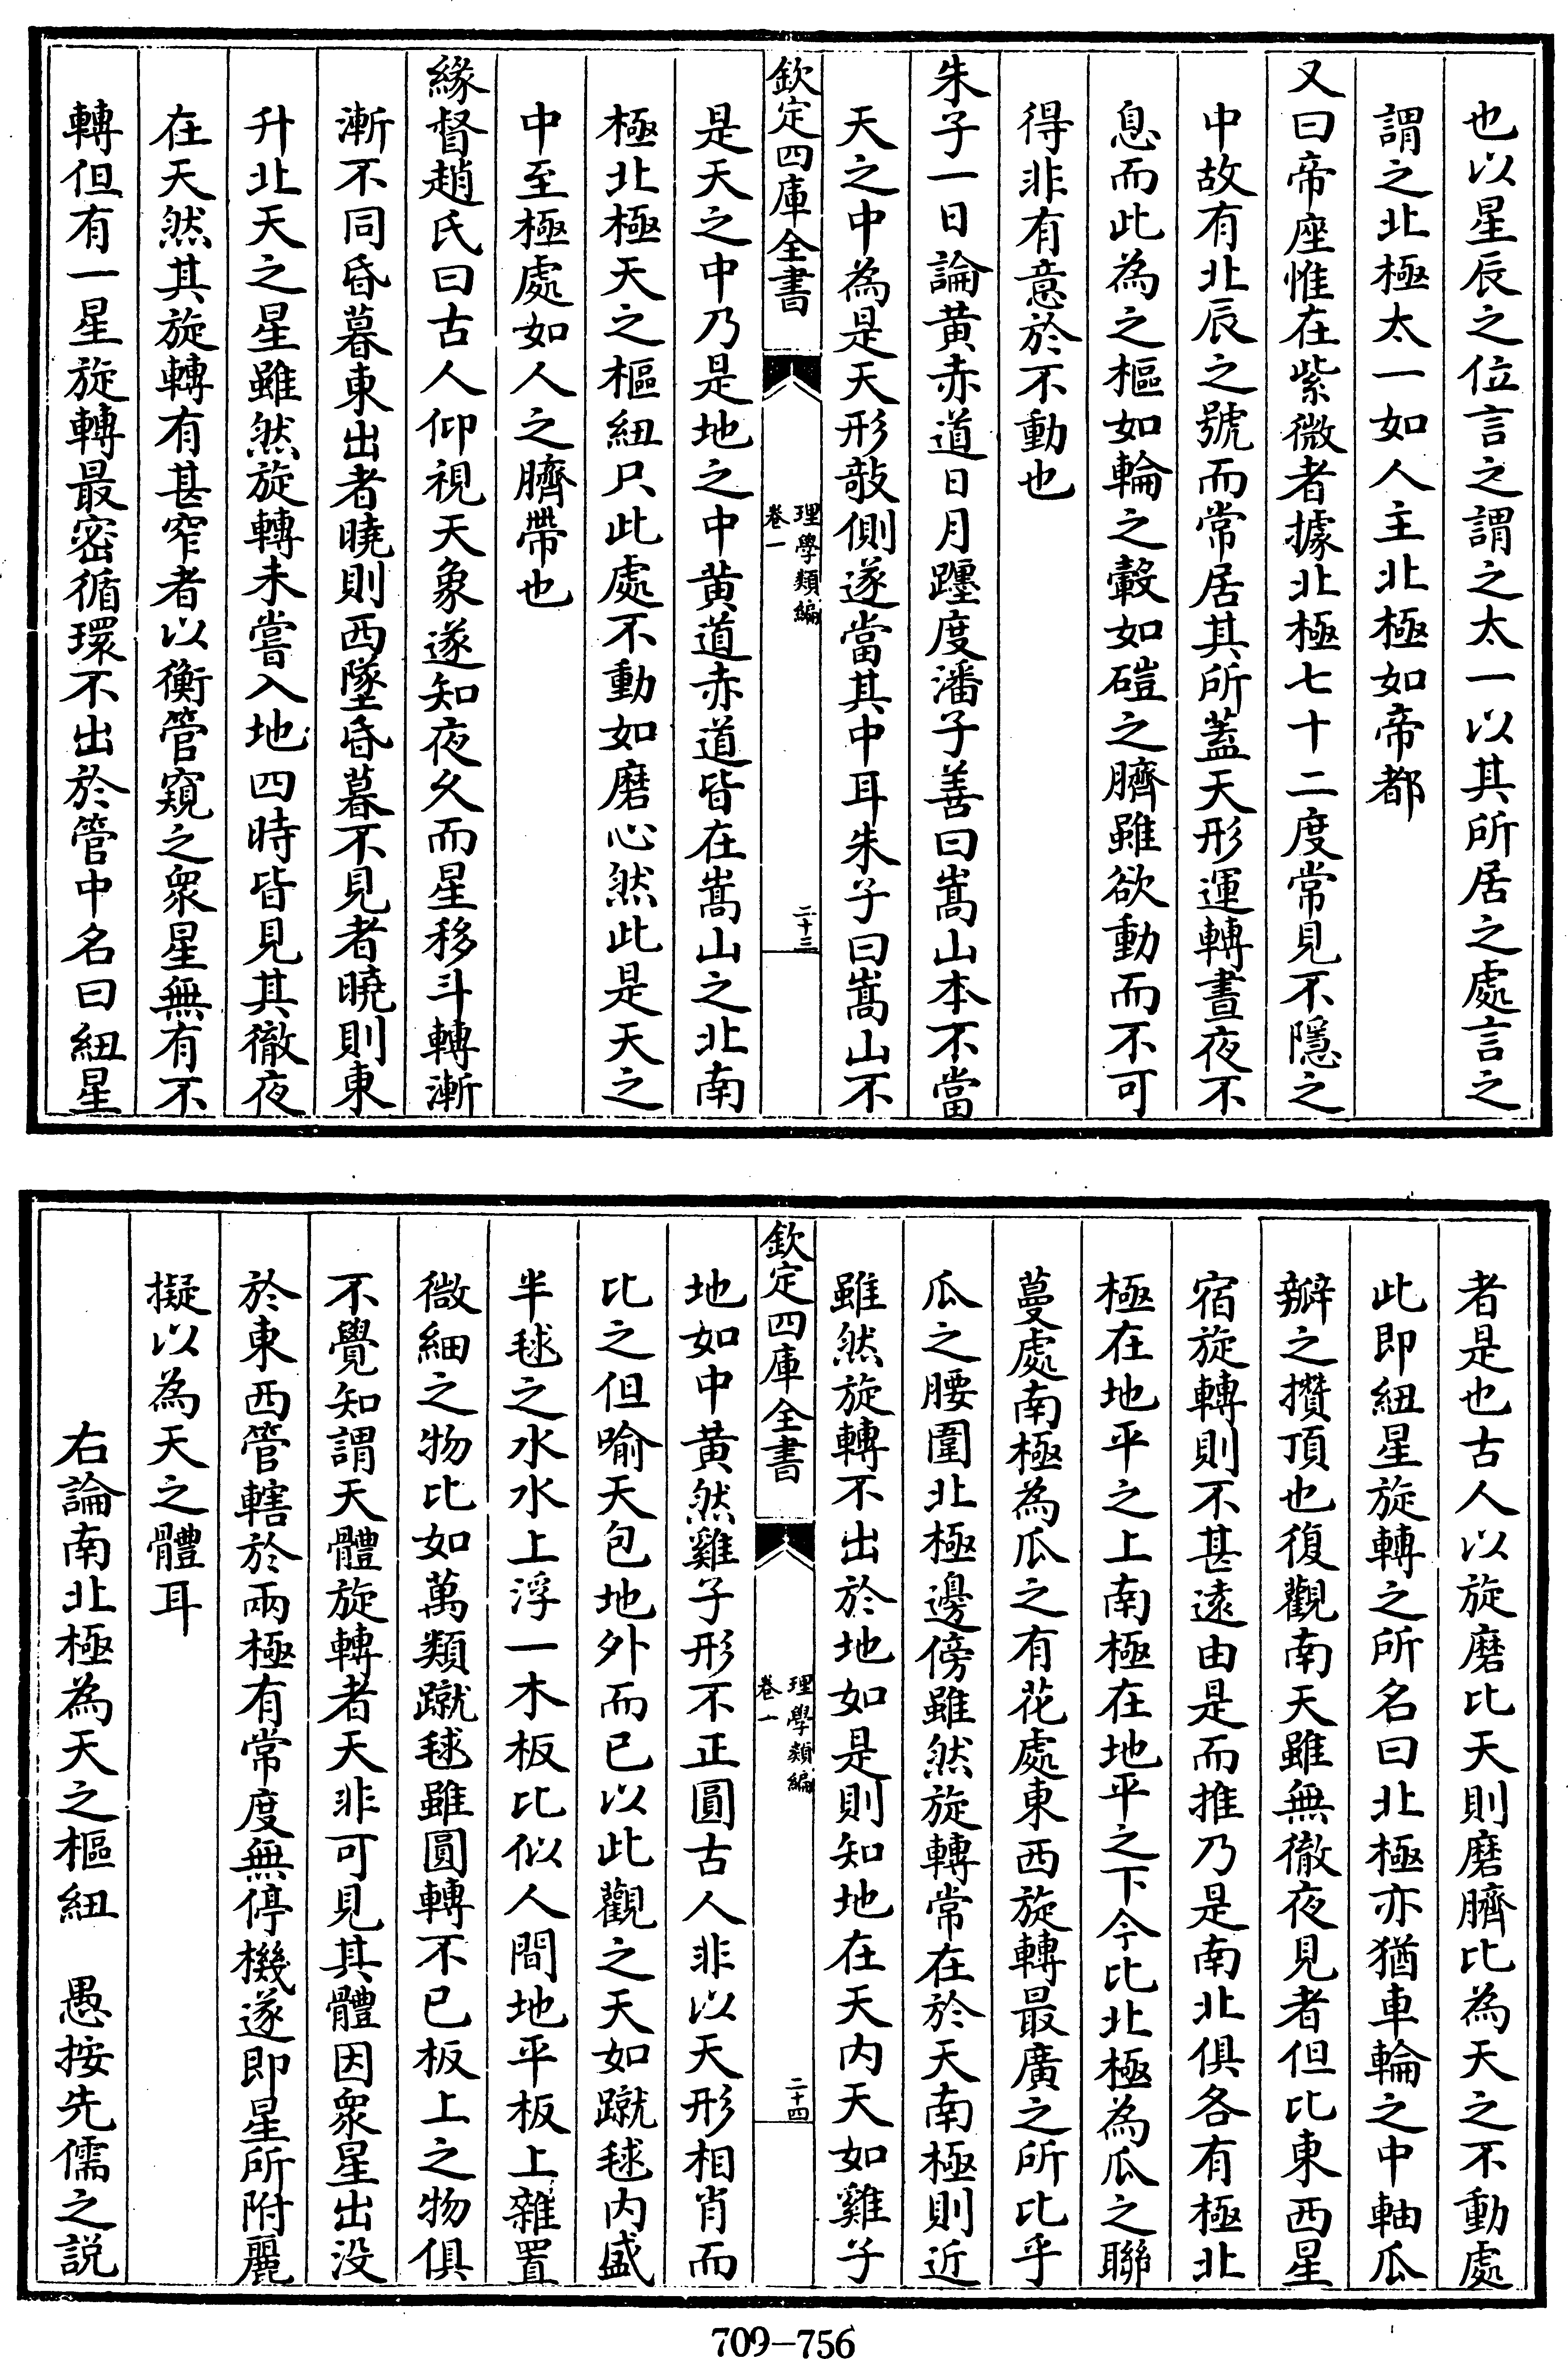 也以星辰之位言之謂之太一以其所居之處言之
謂之北極太一如人主北極如帝都
又曰帝座惟在紫微者據北極七十二度常見不隱之
中故有北辰之號而常居其所蓋天形運轉晝夜不
息而此為之樞如輪之轂如磑之臍雖欲動而不可
得非有意於不動也
朱子一日論黃赤道日月躔度潘子善曰嵩山本不當
天之中為是天形敧側遂當其中耳朱子曰嵩山不
欽定四庫全書
理學類編
卷一
二十三
是天之中乃是地之中黃道赤道皆在嵩山之北南
極北極天之樞紐只此處不動如磨心然此是天之
中至極處如人之臍帶也
緣督趙氏曰古人仰視天象遂知夜久而星移斗轉漸
漸不同昏暮東出者曉則西墜昏暮不見者曉則東
升北天之星雖然旋轉未嘗入地四時皆見其徹夜
在天然其旋轉有甚窄者以衡管窺之衆星無有不
轉但有一星旋轉最密循環不出於管中名曰紐星
者是也古人以旋磨比天則磨臍比為天之不動處
此即紐星旋轉之所名曰北極亦猶車輪之中軸瓜
瓣之攢頂也復觀南天雖無徹夜見者但比東西星
宿旋轉則不甚遠由是而推乃是南北俱各有極北
極在地平之上南極在地平之下今比北極為瓜之聯
蔓處南極為瓜之有花處東西旋轉最廣之所比乎
瓜之腰圍北極邊傍雖然旋轉常在於天南極則近
雖然旋轉不出於地如是則知地在天内天如雞子
欽定四庫全書
理學類編
卷一
二十四
地如中黃然雞子形不正圓古人非以天形相肖而
比之但喻天包地外而已以此觀之天如蹴毬内盛
半毬之水水上浮一木板比似人間地平板上雜置
微細之物比如萬類蹴毬雖圓轉不已板上之物俱
不覺知謂天體旋轉者天非可見其體因衆星出没
於東西管轄於兩極有常度無停機遂即星所附麗
擬以為天之體耳
右論南北極為天之樞紐　愚按先儒之説
709-756